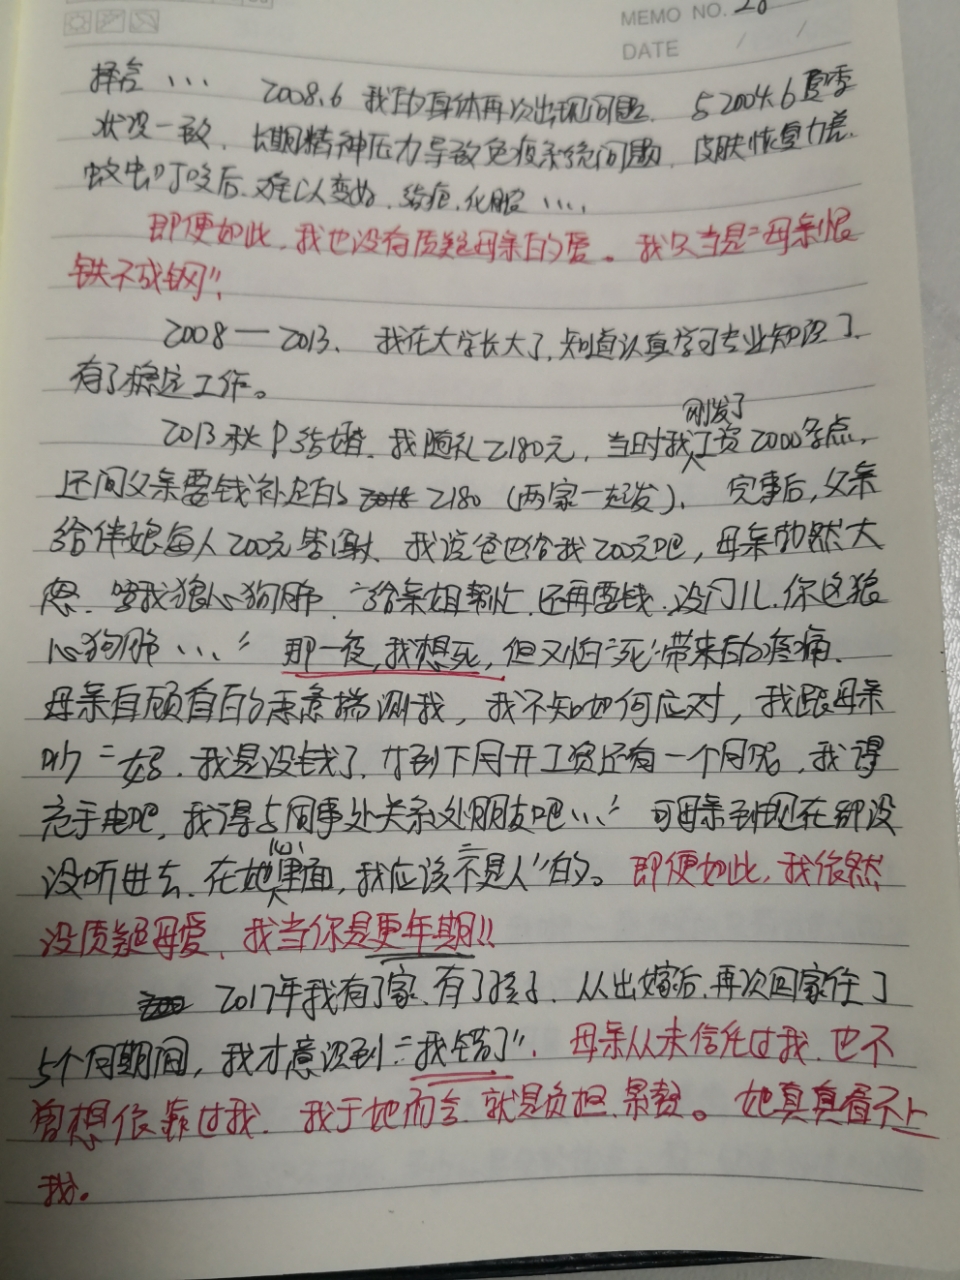 MEMO NO. 28
DATE / /
择言... 2008.6 我的身体再次出现问题. 与2004.6夏季
状况一致. 长期精神压力导致免疫系统问题. 皮肤恢复力差.
蚊虫叮咬后.难以变好. 结疤.化脓....
即便如此,我也没有质疑母亲的爱。我只当是"母亲恨
铁不成钢".
2008—2013. 我在大学长大了,知道认真学习专业知识了.
有了稳定工作。
2013秋P结婚.我随礼2180元,当时我刚发了工资2000多点,
还问父亲要钱补足的2180(两家一起发). 完事后,父亲
给伴娘每人200元答谢.我说爸也给我200元吧,母亲勃然大
怒.骂我狼心狗肺."给亲姐帮忙.还再要钱.没门儿.你这狼
心狗肺..." 那一夜,我想死,但又怕"死"带来的疼痛.
母亲自顾自的恶意揣测我,我不知如何应对,我跟母亲
吵"妈.我是没钱了.才到下月开工资还有一个月呢,我得
充手电吧,我得与同事处关系处朋友吧..." 可母亲到现在都没
没听进去.在她心里面,我应该"不是人"的。即便如此,我依然
没质疑母爱、我当你是更年期!!
2017年我有了家.有了孩子.从出嫁后.再次回家住了
5个月期间,我才意识到"我错了".母亲从未信任过我.也不
曾想依靠过我.我于她而言.就是负担.累赘。她真真看不上
我。